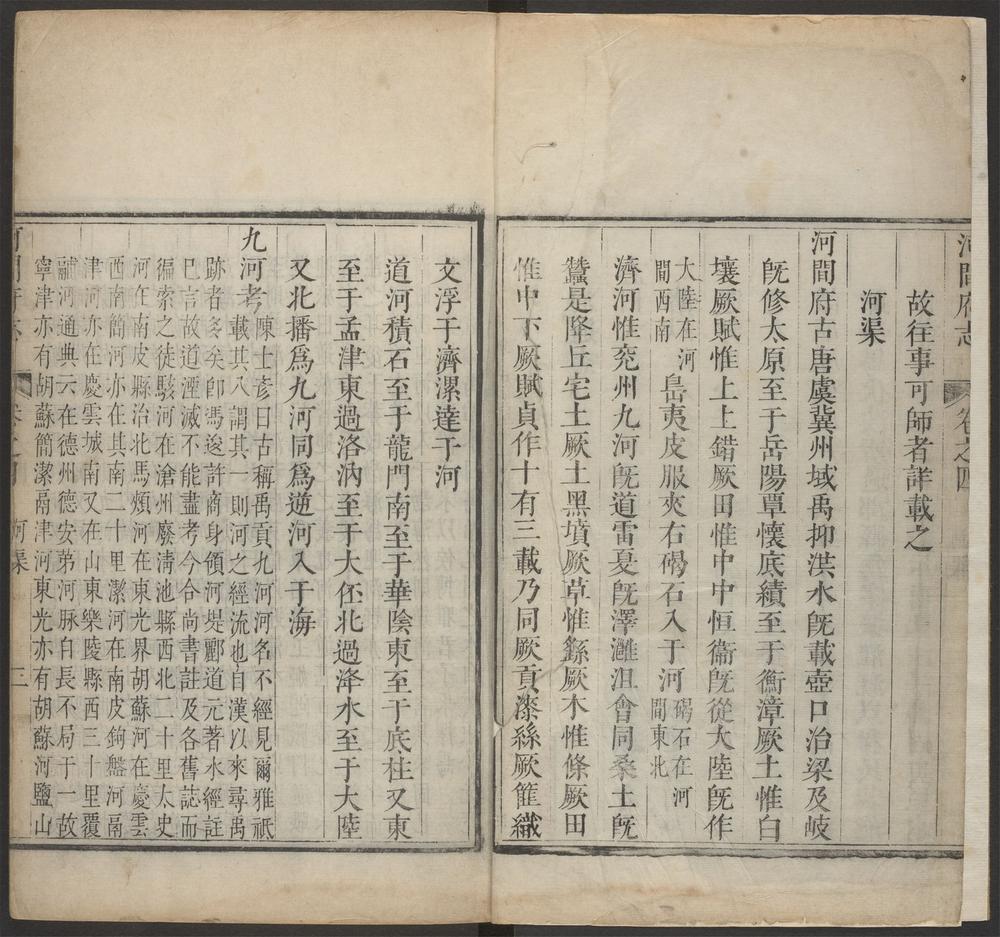 河間府志 卷之四
故往事可師者詳載之
河渠
河間府古唐虞冀州域禹抑洪水旣載壺口治梁及岐
旣修太原至于岳陽覃懷底績至于衡漳厥土惟白
壤厥賦惟上上錯厥田惟中中恒衞旣從大陸旣作
大陸在河
間西南
島夷皮服夾右碣石入于河
碣石在河
間東北
濟河惟兖州九河旣道雷夏旣澤灉沮會同桑土旣
蠶是降丘宅土厥土黑墳厥草惟繇厥木惟條厥田
惟中下厥賦貞作十有三載乃同厥貢漆絲厥篚織
文浮于濟漯達于河
道河積石至于龍門南至于華陰東至于底柱又東
至于孟津東過洛汭至于大伾北過洚水至于大陸
又北播爲九河同爲逆河入于海
九河考
陳士彦曰古稱禹貢九河河名不經見爾雅祇
載其八謂其一則河之經流也自漢以來尋禹
跡者多矣卽馮逡許商身領河堤酈道元著水經註
已言故道湮滅不能盡考今合尚書註及各舊誌而
徧索之徒駭河在滄州廢淸池縣西北二十里太史
河在南皮縣治北馬頰河在東光界胡蘇河在慶雲
西南簡河亦在其南二十里潔河在南皮鉤盤河鬲
津河亦在慶雲城南又在山東樂陵縣西三十里覆
鬴河通典云在德州德安第河脉白長不局于一故
寧津亦有胡蘇簡潔鬲津河東光亦有胡蘇河鹽山
河渠 三